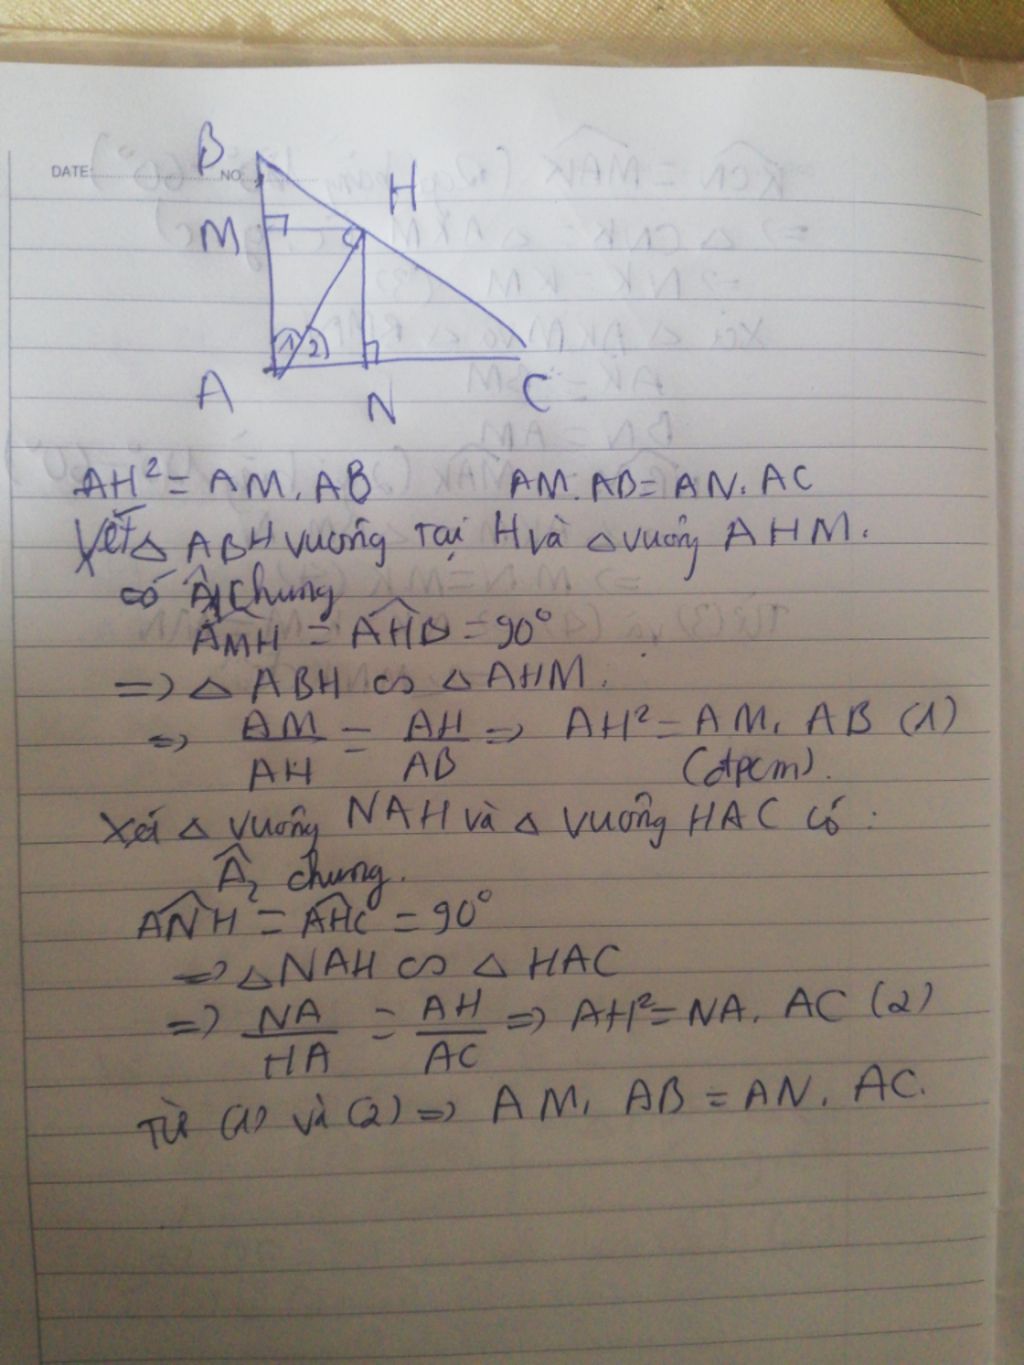 DATE:
NO
B
H
M
1 2
A
N
C
AH² = AM. AB AM. AB = AN. AC
Xét △ ABH vuông tại H và △ vuông AHM.
có Â₁ chung
AMH = AHB = 90°
=> △ ABH ∽ △ AHM.
=> AM/AH = AH/AB => AH² = AM. AB (1)
(đpcm).
Xét △ vuông NAH và △ vuông HAC có :
Â₂ chung.
ANH = AHC = 90°
=> △ NAH ∽ △ HAC
=> NA/HA = AH/AC => AH² = NA. AC (2)
Từ (1) và (2) => AM. AB = AN. AC.